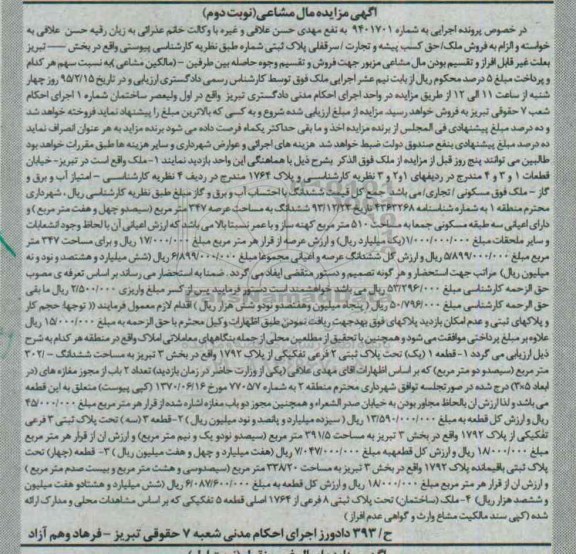 آگهی مزایده مال مشاعی(نوبت دوم)
در خصوص پرونده اجرایی به شماره ۹۴۰۱۷۰۱ به نفع مهدی حسن علافی و غیره با وکالت خانم عذرائی به زیان رقیه حسن علافی به
خواسته و الزام به فروش ملک/حق کسب پیشه و تجارت / سرقفلی پلاک ثبتی شماره طبق نظریه کارشناسی پیوستی واقع در بخش —— تبریز
بعلت غیر قابل افراز و تقسیم بودن مال مشاعی مزبور جهت فروش و تقسیم وجوه حاصله بین طرفین – (مالکین مشاعی )به نسبت سهم هر کدام
و پرداخت مبلغ ۵ درصد محکوم ریال از بابت نیم عشر اجرایی ملک فوق توسط کارشناس رسمی دادگستری ارزیابی و در تاریخ ۹۵/۲/۱۵ روز چهار
شنبه از ساعت ۱۱ الی ۱۲ از طریق مزایده در واحد اجرای احکام مدنی دادگستری تبریز واقع در اول ولیعصر ساختمان شماره ۱ اجرای احکام
شعب ۷ حقوقی تبریز به فروش خواهد رسید. مزایده از مبلغ ارزیابی شده شروع و به کسی که بالاترین مبلغ را پیشنهاد نماید فروخته خواهد شد
و ده درصد مبلغ پیشنهادی فی المجلس از برنده مزایده اخذ و ما بقی حداکثر یکماه فرصت داده می شود برنده مزاید به هر عنوان انصراف نماید
ده درصد مبلغ پیشنهادی بنفع صندوق دولت ضبط خواهد شد. هزینه های اجرائی و عوارض شهرداری و سایر هزینه ها طبق مقررات خواهد بود
طالبین می توانند پنج روز قبل از مزایده از ملک فوق الذکر بشرح ذیل با هماهنگی این واحد بازدید نمایند ۱- ملک واقع است در تبریز- خیابان
قطعات ۱ و ۳ و ۴ مندرج در ردیفهای ۱و۲ و ۳ نظریه کارشناسی و پلاک ۱۷۶۴ مندرج در ردیف ۴ نظریه کارشناسی - امتیاز آب و برق و
گاز - ملک فوق مسکونی / تجاری/ می باشد - جمع کل قیمت ششدانگ با احتساب آب و برق و گاز مبلغ طبق نظریه کارشناسی ریال ، شهرداری
محترم منطقه ۱ به شماره شناسنامه ۹۳۶۳۲۶۸ تاریخ ۹۳/۱۲/۲۳ ششدانگ به مساحت عرصه ۳۴۷ متر مربع (سیصدو چهل و هفت متر مربع) و
دارای اعیانی سه طبقه مسکونی جمعا به مساحت ۵۱۰ متر مربع کهنه ساز و با عمر نسبتا بالا می باشد که ارزش اعیانی آن با لحاظ وجود انشعابات
و سایر ملحقات مبلغ ۱/۰۰۰/۰۰۰/۰۰۰(یک میلیارد ریال) و ارزش عرصه از قرار هر متر مربع مبلغ ۱۷/۰۰۰/۰۰۰ ریال و برای مساحت ۳۴۷ متر
مربع مبلغ ۵/۸۹۹/۰۰۰/۰۰۰ ریال و ارزش کل ششدانگ عرصه و اعیانی مجموعا مبلغ ۶/۸۹۹/۰۰۰/۰۰۰ ریال (شش میلیارد و هشتصد و نود و نه
میلیون ریال) مراتب جهت استحضار و هر گونه تصمیم و دستور مقتضی ایفاد می گردد . ضمنا به استحضار می رساند بر اساس تعرفه ی مصوب
حق الزحمه کارشناسی مبلغ ۵۳/۲۹۶/۰۰۰ ریال می باشد خواهشمند است دستور فرمایید پس از کسر مبلغ واریزی ۲/۵۰۰/۰۰۰ ریال ما بقی
حق الزحمه کارشناسی مبلغ ۵۰/۷۹۶/۰۰۰ ریال ( پنجاه میلیون وهفتصدو نودو شش هزار ریال ) اقدام لازم معمول فرمایند (( توجها: حجم کار
و پلاکهای ثبتی و عدم امکان بازدید پلاکهای فوق بعد جهت ریافت نمودن طبق اظهارات وکیل محترم با حق الزحمه به مبلغ ۱۵/۰۰۰/۰۰۰ ریال
علاوه بر مبلغ پرداختی موافقت می شود و همچنین با تحقیق از مطلعین محلی از جمله بنگاههای معاملاتی املاک واقع در منطقه هر کدام به شرح
ذیل ارزیابی می گردد ۱- قطعه ۱ (یک) تحت پلاک ثبتی ۲ فرعی تفکیکی از پلاک ۱۷۹۲ واقع در بخش ۳ تبریز به مساحت ششدانگ - ۳۰۲/
متر مربع (سیصدو دو متر مربع) که بر اساس اظهارات آقای مهدی علافی (یکی از وزارت حاضر در زمان بازدید) تعداد ۲ باب از مجوز مغازه های (در
ابعاد ۵x۳) درج شده در صورتجلسه توافق شهرداری محترم منطقه ۲ به شماره ۷۷۰۵/۷ مورخ ۱۳۷۰/۰۶/۱۶ (کپی پیوست) متعلق به این قطعه
می باشد و لذا ارزش آن بالحاظ مجاور بودن به خیابان صدر الشعراء و همچنین مجوز دو باب مغازه اشاره شده از قرار هر متر مربع مبلغ ۴۵/۰۰۰/۰۰۰
ریال و ارزش کل قطعه به مبلغ ۱۳/۵۹۰/۰۰۰/۰۰۰ ریال ( سیزده میلیارد و پانصد و نود میلیون ریال ) ۲- قطعه ۳ (سه ) تحت پلاک ثبتی ۳ فرعی
تفکیکی از پلاک ۱۷۹۲ واقع در بخش ۳ تبریز به مساحت ۳۹۱/۵ متر مربع (سیصدو نودو یک و نیم متر مربع) و ارزش آن از قرار هر متر مربع
مبلغ ۱۸/۰۰۰/۰۰۰ ریال و ارزش کل قطعهبه مبلغ ۷/۰۴۷/۰۰۰/۰۰۰ ریال (هفت میلیارد و چهل و هفت میلیون ریال ) ۳- قطعه (چهار) تحت
پلاک ثبتی باقیمانده پلاک ۱۷۹۲ واقع در بخش ۳ تبریز به مساحت ۳۳۸/۲۰ متر مربع (سیصدوسی و هشت متر مربع و بیست صدم متر مربع )
و ارزش آن از قرار هر متر مربع مبلغ ۱۸/۰۰۰/۰۰۰ ریال و ارزش کل قطعه به مبلغ ۶/۰۸۷/۶۰۰/۰۰۰ ریال (شش میلیارد و هشتادو هفت میلیون
و ششصد هزار ریال) ۴- ملک (ساختمان) تحت پلاک ثبتی ۸ فرعی از ۱۷۶۴ اصلی قطعه ۵ تفکیکی که بر اساس مشاهدات محلی و مدارک ارائه
شده (کپی سند مالکیت مشاع وارث و گواهی عدم افراز )
ح/ ۳۹۳ دادورز اجرای احکام مدنی شعبه ۷ حقوقی تبریز - فرهاد وهم آزاد